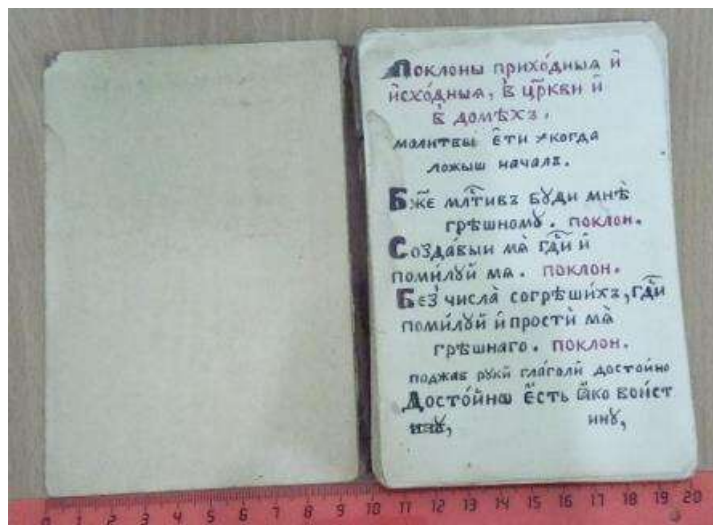 Поклоны прихо́дныѧ и҆
и҆схо́дныѧ, в̾ цр҃кви и҆
в̾ домѣхъ.
молитвы ети ꙋкогда
ложыш началъ.
Бж҃е мл҇тивъ бꙋди мнѣ̀
грѣшномꙋ. поклон.
Созда́выи мѧ̀ гд҇и и҆
поми́лꙋй мѧ. поклон.
Без̾ числа̀ согрѣши́хъ, гд҇и
поми́лꙋй и҆ простѝ мѧ̀
грѣшнаго. поклон.
поджав руки̇ гла́голй досто́йно
Досто́йнѡ є҆́сть ꙗ҆́ко вои́ст
инꙋ,
0 1 2 3 4 5 6 7 8 9 10 11 12 13 14 15 16 17 18 19 20